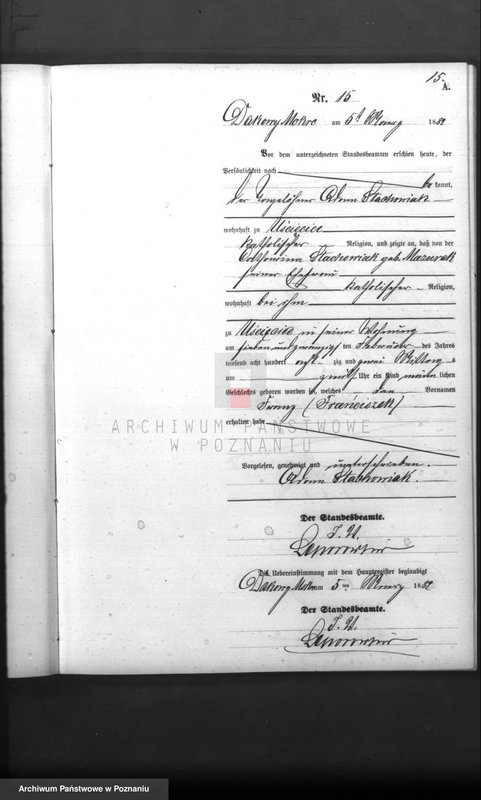 15.
A.
Nr. 15
Dakowy Mokre am 5ten Maerz 1882
Vor dem unterzeichneten Standesbeamten erschien heute, der
Persönlichkeit nach
be kannt,
der Tagelöhner Adam Stachowiak
wohnhaft zu Uścięcice
katholischer Religion, und zeigte an, daß von der
Stachowiak geb. Mazurek
seiner Ehefrau
katholischer Religion,
wohnhaft bei ihm
zu Uścięcice in seiner Wohnung
am sieben und zwanzig ten Februar des Jahres
tausend acht hundert acht zig und zwei Mittag s
um zwölf Uhr ein Kind männ lichen
Geschlechts geboren worden sei, welches den Vornamen
Franz (Franciszek)
erhalten habe
ARCHIWUM PAŃSTWOWE
W POZNANIU
Vorgelesen, genehmigt und unterschrieben.
Adam Stachowiak.
Der Standesbeamte.
J. V.
Die Uebereinstimmung mit dem Hauptregister beglaubigt
Dakowy Mokre am 5ten Maerz 1882
Der Standesbeamte.
J. V.
Archiwum Państwowe w Poznaniu